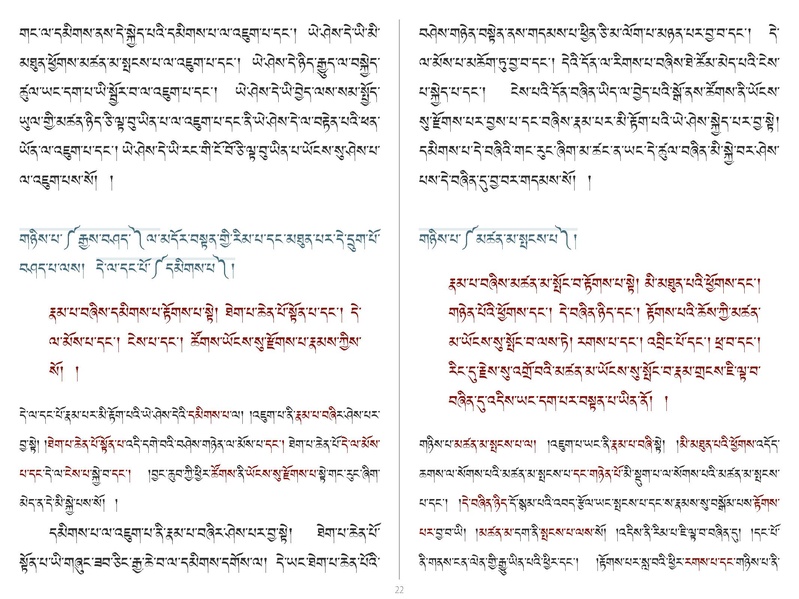 གང་ལ་དམིགས་ནས་དེ་སྐྱེད་པའི་དམིགས་པ་ལ་འཇུག་པ་དང་། ཡེ་ཤེས་དེ་ཡི་མི་
མཐུན་ཕྱོགས་མཚན་མ་སྤངས་པ་ལ་འཇུག་པ་དང་། ཡེ་ཤེས་དེ་ཉིད་རྒྱུད་ལ་བསྐྱེད་
ཚུལ་ཡང་དག་པ་ཡི་སྦྱོར་བ་ལ་འཇུག་པ་དང་། ཡེ་ཤེས་དེ་ཡི་བྱེད་ལས་སམ་སྤྱོད་
ཡུལ་གྱི་མཚན་ཉིད་ཅི་ལྟ་བུ་ཡིན་པ་ལ་འཇུག་པ་དང་ནི་ཡེ་ཤེས་དེ་ལ་བརྟེན་པའི་ཕན་
ཡོན་ལ་འཇུག་པ་དང་། ཡེ་ཤེས་དེ་ཡི་རང་གི་ངོ་བོ་ཅི་ལྟ་བུ་ཡིན་པ་ཡོངས་སུ་ཤེས་པ་
ལ་འཇུག་པས་སོ། །
གཉིས་པ་༼རྒྱས་བཤད་༽ལ་མདོར་བསྟན་གྱི་རིམ་པ་དང་མཐུན་པར་དེ་དྲུག་པོ་
བཤད་པ་ལས། དེ་ལ་དང་པོ་༼དམིགས་པ་༽།
རྣམ་པ་བཞིས་དམིགས་པ་རྟོགས་པ་སྟེ། ཐེག་པ་ཆེན་པོ་སྟོན་པ་དང་། དེ་
ལ་མོས་པ་དང་། ངེས་པ་དང་། ཚོགས་ཡོངས་སུ་རྫོགས་པ་རྣམས་ཀྱིས་
སོ། །
དེ་ལ་དང་པོ་རྣམ་པར་མི་རྟོག་པའི་ཡེ་ཤེས་དེའི་དམིགས་པ་ལ། །འཇུག་པ་ནི་རྣམ་པ་བཞིར་ཤེས་པར་
བྱ་སྟེ། །ཐེག་པ་ཆེན་པོ་སྟོན་པ་འདི་དགེ་བའི་བཤེས་གཉེན་ལ་མོས་པ་དང་། ཐེག་པ་ཆེན་པོ་དེ་ལ་མོས་
པ་དང་དེ་ལ་ངེས་པ་སྐྱེ་བ་དང་། །བྱང་ཆུབ་ཀྱི་ཕྱིར་ཚོགས་ནི་ཡོངས་སུ་རྫོགས་པ་སྟེ་གང་རུང་ཞིག་
མེད་ན་དེ་མི་སྐྱེ་པས་སོ། །
དམིགས་པ་ལ་འཇུག་པ་ནི་རྣམ་པ་བཞིར་ཤེས་པར་བྱ་སྟེ། ཐེག་པ་ཆེན་པོ་
སྟོན་པ་ཡི་གཞུང་ཟབ་ཅིང་རྒྱ་ཆེ་བ་ལ་དམིགས་དགོས་ལ། དེ་ཡང་ཐེག་པ་ཆེན་པོའི་
བཤེས་གཉེན་བསྟེན་ནས་གདམས་པ་ཕྱིན་ཅི་མ་ལོག་པ་མཉན་པར་བྱ་བ་དང་། དེ་
ལ་མོས་པ་མཆོག་ཏུ་བྱ་བ་དང་། དེའི་དོན་ལ་རིགས་པ་བཞིས་ཐེ་ཚོམ་མེད་པའི་ངེས་
པ་སྐྱེད་པ་དང་། ངེས་པའི་དོན་བཞིན་ཡིད་ལ་བྱེད་པའི་སྒོ་ནས་ཚོགས་ནི་ཡོངས་
སུ་རྫོགས་པར་བྱས་པ་དང་བཞིས་རྣམ་པར་མི་རྟོག་པའི་ཡེ་ཤེས་སྐྱེད་པར་བྱ་སྟེ།
དམིགས་པ་དེ་བཞིའི་གང་རུང་ཞིག་མ་ཚང་ན་ཡང་དེ་ཚུལ་བཞིན་མི་སྐྱེ་བར་ཤེས་
པས་དེ་བཞིན་དུ་བྱ་བར་གདམས་སོ། །
གཉིས་པ་༼མཚན་མ་སྤངས་པ་༽།
རྣམ་པ་བཞིས་མཚན་མ་སྤོང་བ་རྟོགས་པ་སྟེ། མི་མཐུན་པའི་ཕྱོགས་དང་།
གཉེན་པོའི་ཕྱོགས་དང་། དེ་བཞིན་ཉིད་དང་། རྟོགས་པའི་ཆོས་ཀྱི་མཚན་
མ་ཡོངས་སུ་སྤོང་བ་ལས་ཏེ། རགས་པ་དང་། འབྲིང་པོ་དང་། ཕྲ་བ་དང་།
རིང་དུ་རྗེས་སུ་འགྲོ་བའི་མཚན་མ་ཡོངས་སུ་སྤོང་བ་རྣམ་གྲངས་ཇི་ལྟ་བ་
བཞིན་དུ་འདིས་ཡང་དག་པར་བསྟན་པ་ཡིན་ནོ། །
གཉིས་པ་མཚན་མ་སྤངས་པ་ལ། །འཇུག་པ་ཡང་ནི་རྣམ་པ་བཞི་སྟེ། །མི་མཐུན་པའི་ཕྱོགས་འདོད་
ཆགས་ལ་སོགས་པའི་མཚན་མ་སྤངས་པ་དང་གཉེན་པོ་མི་སྡུག་པ་ལ་སོགས་པའི་མཚན་མ་སྤངས་
པ་དང་། །དེ་བཞིན་ཉིད་དོ་སྙམ་པའི་འབད་རྩོལ་ཡང་སྤངས་པ་དང་ས་རྣམས་སུ་བསྒོམ་པས་རྟོགས་
པར་བྱ་བ་ཡི། །མཚན་མ་དག་ནི་སྤངས་པ་ལས་སོ། །འདིས་ནི་རིམ་པ་ཇི་ལྟ་བ་བཞིན་དུ། །དང་པོ་
ནི་གནས་ངན་ལེན་གྱི་རྒྱུ་ཡིན་པའི་ཕྱིར་དང་། །རྟོགས་པར་སླ་བའི་ཕྱིར་རགས་པ་དང་གཉིས་པ་ནི་
22